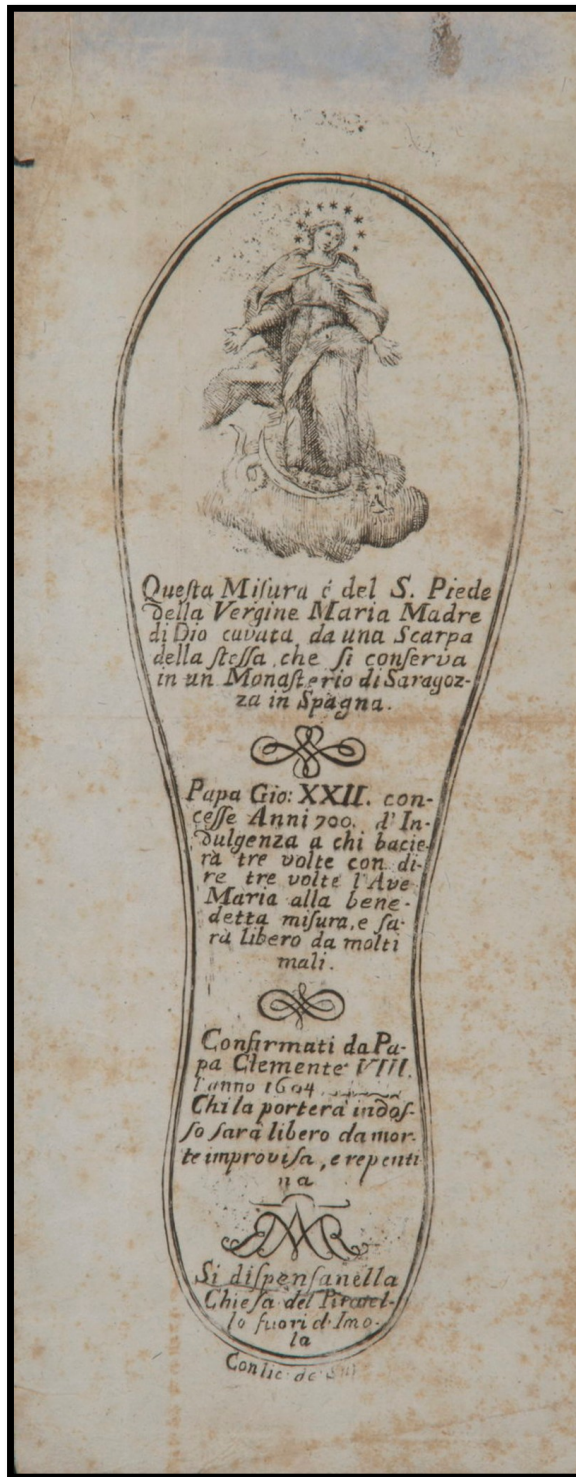 Queſta Miſura é del S. Piede
della Vergine Maria Madre
di Dio cavata da una Scarpa
della ſteſſa, che ſi conſerva
in un Monaſterio di Saragoz-
za in Spagna.
Papa Gio: XXII. con-
ceſſe Anni 700. d'In-
dulgenza a chi bacie-
rà tre volte con di-
re tre volte l'Ave
Maria alla bene-
detta miſura, e ſa-
rà libero da molti
mali.
Confirmati da Pa-
pa Clemente VIII.
l'anno 1604
Chi la porterà indoſ-
ſo ſarà libero da mor-
te improviſa, e repenti
na
MAR
Si diſpenſa nella
Chieſa del Piratel-
lo fuori d'Imo-
la
Con lic. de'